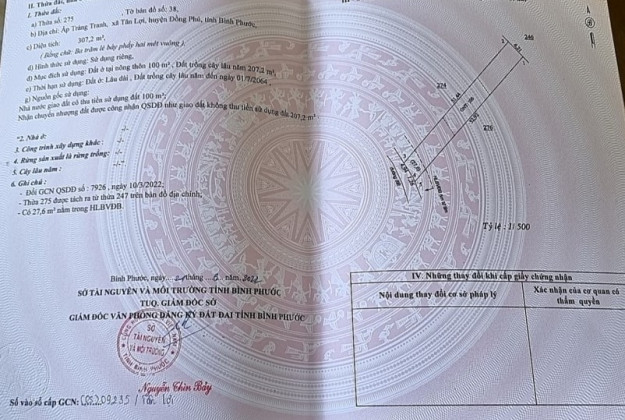 II. Thửa đất,
1. Thửa đất:
a) Thửa số: 275 , Tờ bản đồ số: 38,
b) Địa chỉ: Ấp Trảng Tranh, xã Tân Lợi, huyện Đồng Phú, tỉnh Bình Phước,
c) Diện tích: 307,2 m²,
(Bằng chữ: Ba trăm lẻ bảy phẩy hai mét vuông),
d) Hình thức sử dụng: Sử dụng riêng,
đ) Mục đích sử dụng: Đất ở tại nông thôn 100 m², Đất trồng cây lâu năm 207,2 m²,
e) Thời hạn sử dụng: Đất ở: Lâu dài , Đất trồng cây lâu năm đến ngày 01/7/2064,
g) Nguồn gốc sử dụng:
Nhà nước giao đất có thu tiền sử dụng đất 100 m²;
Nhận chuyển nhượng đất được công nhận QSDĐ như giao đất không thu tiền sử dụng đất 207,2 m²
*2. Nhà ở: -/-
3. Công trình xây dựng khác: -/-
4. Rừng sản xuất là rừng trồng: -/-
5. Cây lâu năm: -/-
6. Ghi chú:
- Đổi GCN QSDĐ số : 7926 , ngày 10/3/2022;
- Thửa 275 được tách ra từ thửa 247 trên bản đồ địa chính;
- Có 27,6 m² nằm trong HLBVĐB.
246
274
276
Tỷ lệ : 1/ 500
Bình Phước, ngày tháng năm
SỞ TÀI NGUYÊN VÀ MÔI TRƯỜNG TỈNH BÌNH PHƯỚC
TUQ. GIÁM ĐỐC SỞ
GIÁM ĐỐC VĂN PHÒNG ĐĂNG KÝ ĐẤT ĐAI TỈNH BÌNH PHƯỚC
SỞ
TÀI NGUYÊN
VÀ MÔI TRƯỜNG
TỈNH BÌNH PHƯỚC
Nguyễn Chín Bảy
Số vào sổ cấp GCN: 09235 / Tân Lợi
IV. Những thay đổi khi cấp giấy chứng nhận
Nội dung thay đổi cơ sở pháp lý
Xác nhận của cơ quan có
thẩm quyền